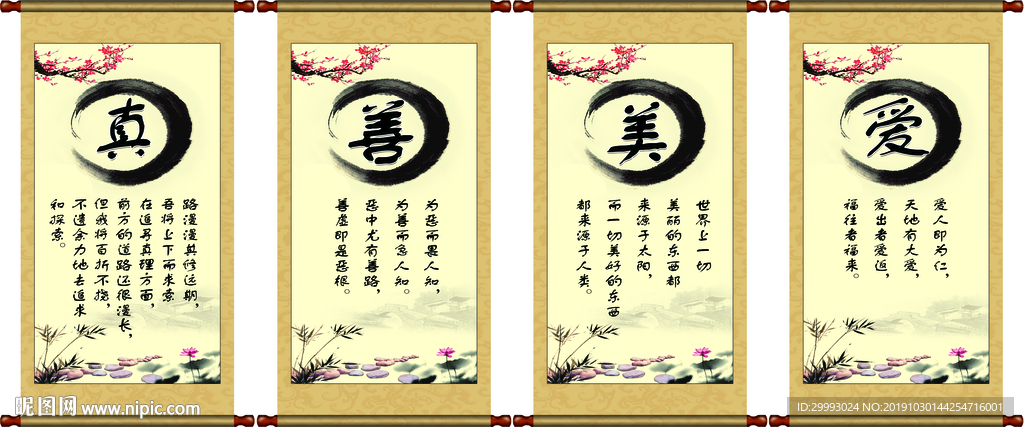 真
路漫漫其修远期，
吾将上下而求索
在追寻真理方面，
前方的道路还很漫长，
但我将百折不挠，
不遗余力地去追求
和探索。
善
为恶而畏人知，
为善而急人知。
恶中尤有善路，
善虚即是恶根。
美
世界上一切
美丽的东西都
来源于太阳，
而一切美好的东西
都来源于人类。
爱
爱人即为仁，
天地有大爱，
爱出者爱返，
福往者福来。
昵图网 www.nipic.com
ID:29993024 NO:20191030144254716001